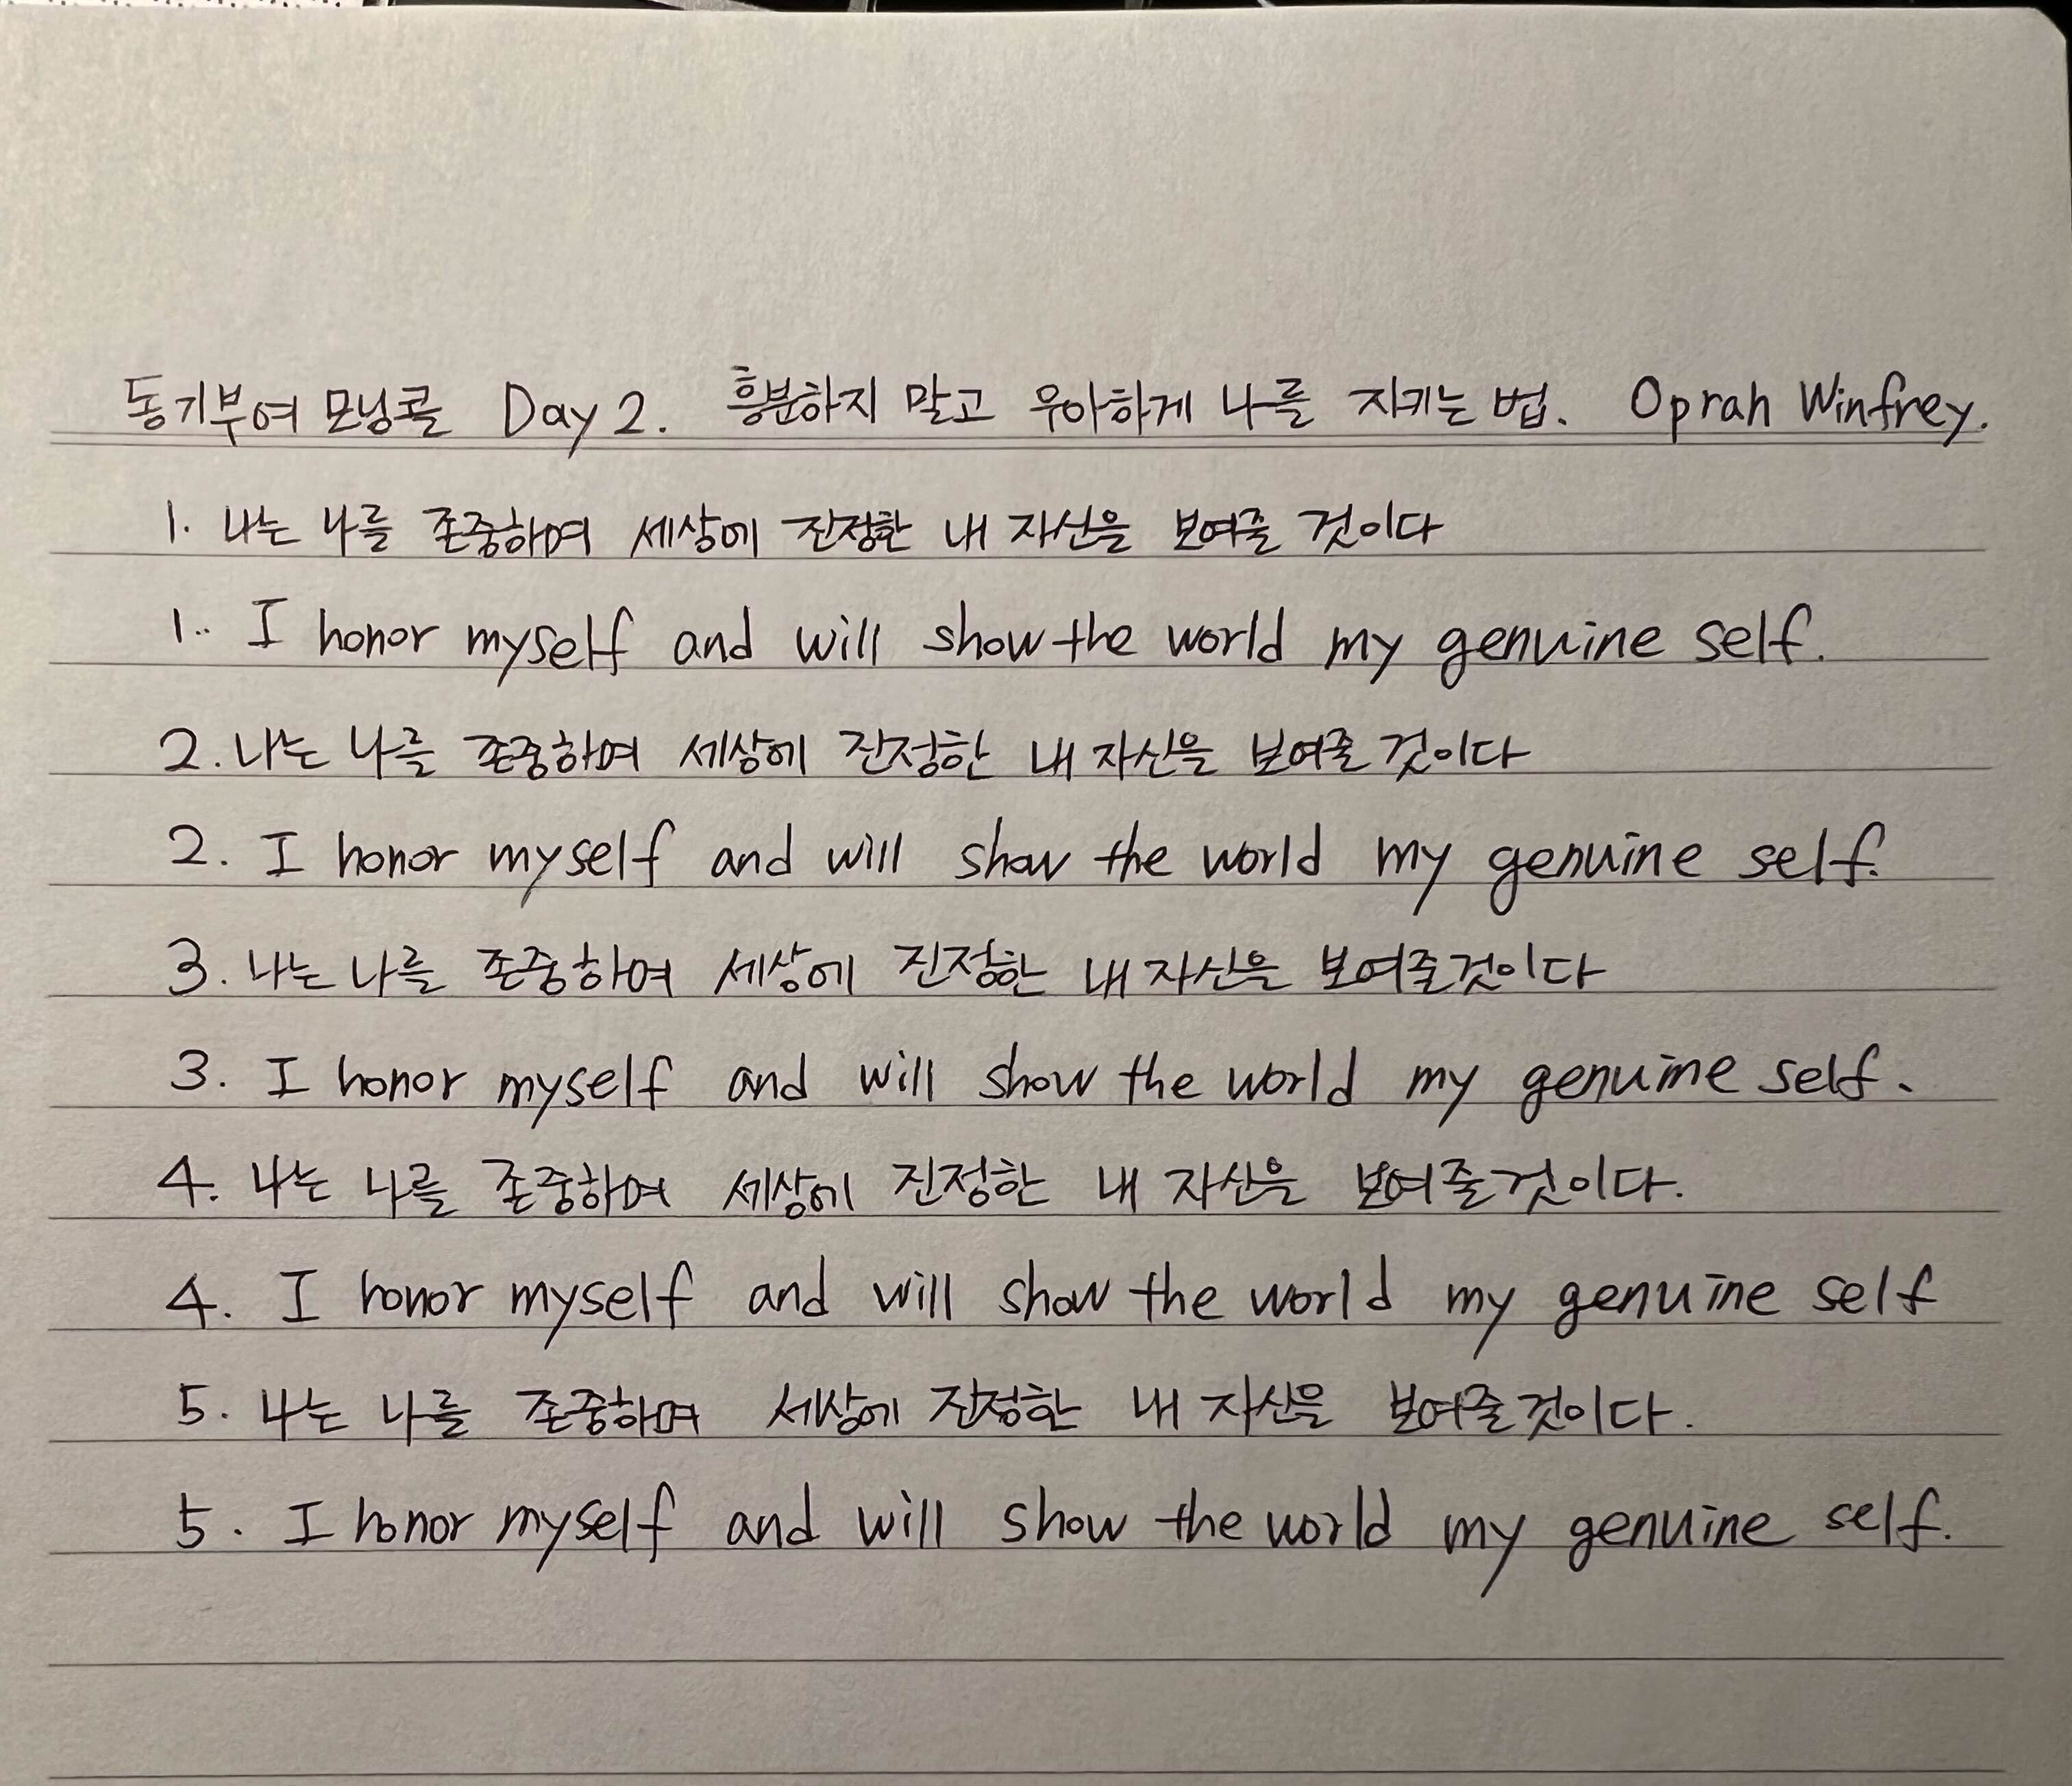 동기부여 모닝콜 Day 2. 흥분하지 말고 우아하게 나를 지키는 법. Oprah Winfrey.
1. 나는 나를 존중하여 세상에 진정한 내 자신을 보여줄 것이다
1.. I honor myself and will show the world my genuine self.
2. 나는 나를 존중하여 세상에 진정한 내 자신을 보여줄 것이다
2. I honor myself and will show the world my genuine self.
3. 나는 나를 존중하여 세상에 진정한 내 자신을 보여줄것이다
3. I honor myself and will show the world my genuine self.
4. 나는 나를 존중하여 세상에 진정한 내 자신을 보여줄것이다.
4. I honor myself and will show the world my genuine self
5. 나는 나를 존중하며 세상에 진정한 내 자신을 보여줄것이다.
5. I honor myself and will show the world my genuine self.